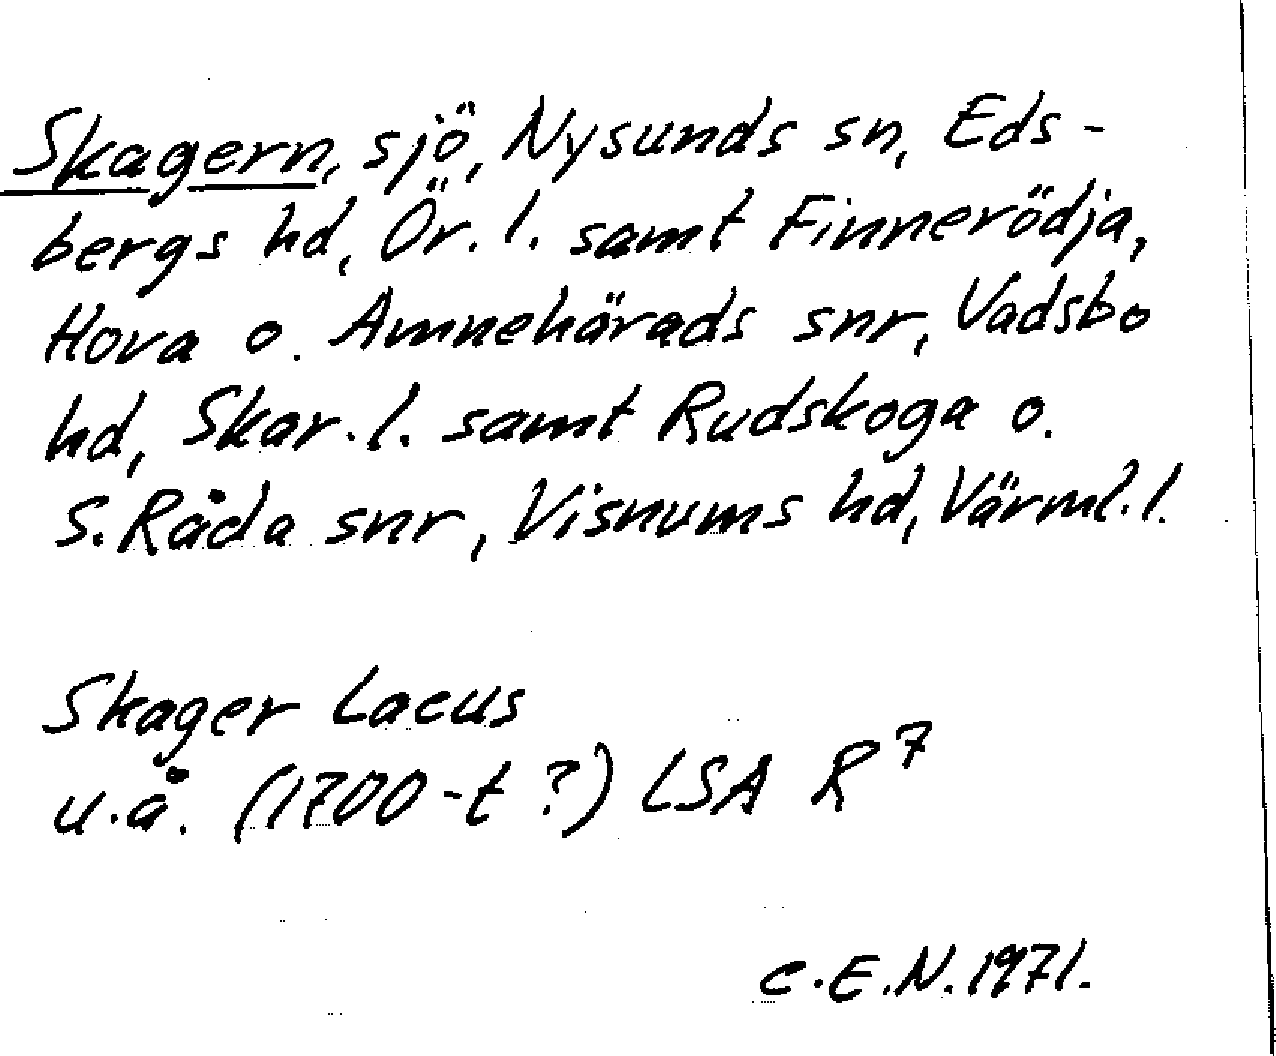 Skagern, sjö, Nysunds sn, Eds-
bergs hd, Ör. l. samt Finnerödja,
Hova o. Amnehärads snr, Vadsbo
hd, Skar. l. samt Rudskoga o.
S. Råda snr, Visnums hd, Värml. l.
Skager Lacus
u.å. (1700-t ?) LSA R⁷
C.E.N. 1971.